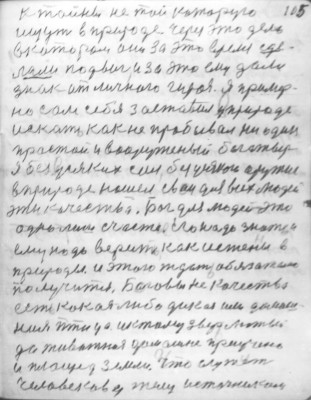 к тайны не той которую 105
ищут в природе через это дело
в котором они за это время сде-
лали подвиг и за это ему дали
знак отличного героя. Я прямо-
но сам себя заставил в природе
искать как не пробывал ни один
простой и вооруженый богатыр
я без всяких сил без всякой оружие
в природе нашел свои для всех людей
эти качества. Бог для людей это
одно лишь счасте. Его надо знать и
ему надо верить как истене в
природе и этого ждать обязательно
получится. Боговы не качества
есть какая либо дикая или домаш-
ния птица и к тому зверь
да животная домашне приучено
и площад земли. Что служит
человекову жиму источником